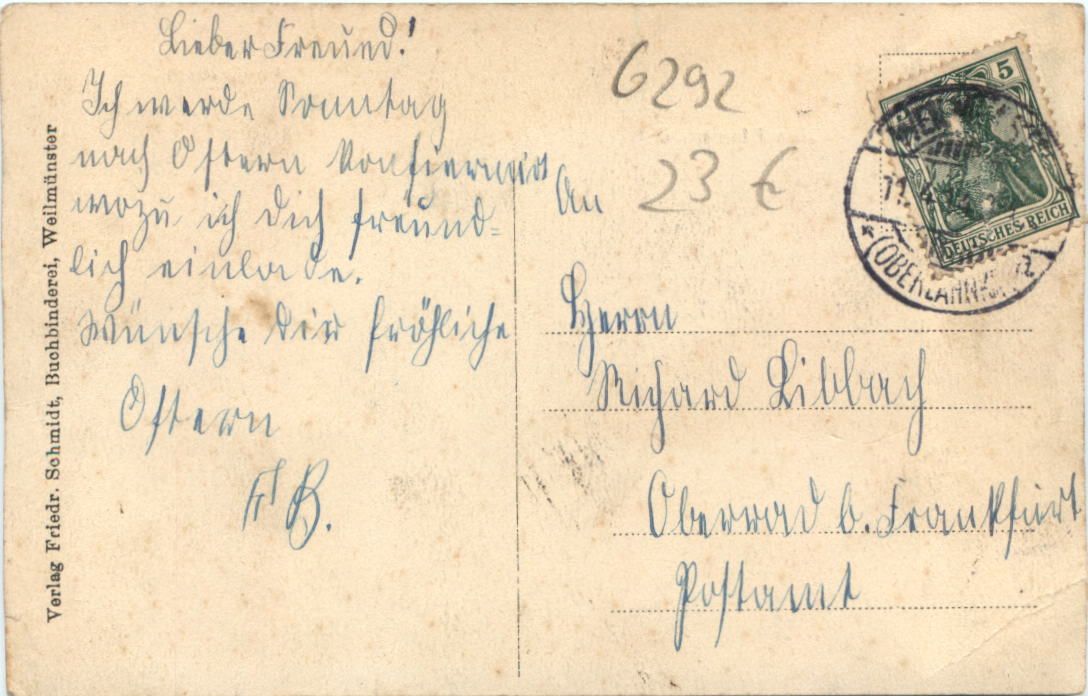 Lieber Freund!
Ich werde Sonntag
nach Ostern Konfiermirt
wozu ich dich freund=
lich einlade.
Wünsche dir fröhliche
Ostern
B.
6292
23 €
An
Herrn
Richard Libbach
Oberrad b. Frankfurt
Postamt
5
DEUTSCHES REICH
(OBERLAHNKR.)
Verlag Friedr. Schmidt, Buchbinderei, Weilmünster